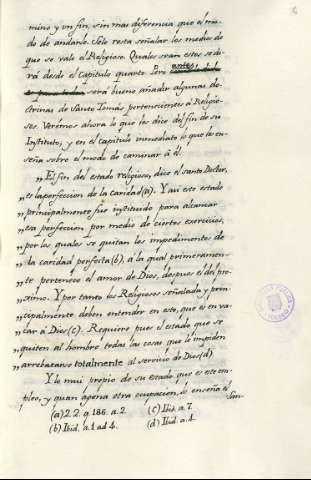 mino y un fin, sin mas diferencia que el mo-
do de andarlo. Solo resta señalar los medios de
que se vale el Religioso. Quales sean estos se di-
rá desde el Capitulo quarto. Pero antes,
será bueno añadir algunas doc-
trinas de Santo Tomás pertenecientes á Religio-
ses. Verémos ahora lo que les dice del fin de su
Instituto, y en el capitulo inmediato lo que en-
seña sobre el modo de caminar á él.
„El fin del estado religioso, dice el santo Doctor,
„es la perfeccion de la caridad (a). Y así este estado
„principalmente fue instituido para alcanzar
„esa perfeccion por medio de ciertos exercicios,
„por los quales se quitan los impedimentos de
„la caridad perfecta (b), á la qual primeramen-
„te pertenece el amor de Dios, despues el del pro-
„ximo. Y por tanto los Religiosos señalada y prin-
„cipalmente deben entender en esto, que es en va-
„car á Dios (c). Requiere pues el estado que se
„quiten al hombre todas las cosas que le impiden
„arrebatarse totalmente al servicio de Dios (d)
Y lo mui propio de su estado que es este em-
pleo, y quan agena otra ocupacion, lo enseña el
San-
(a) 2. 2. q. 186. a. 2 (c) Ibid. a. 7.
(b) Ibid. a. 1. ad 4. (d) Ibid. a. 4.